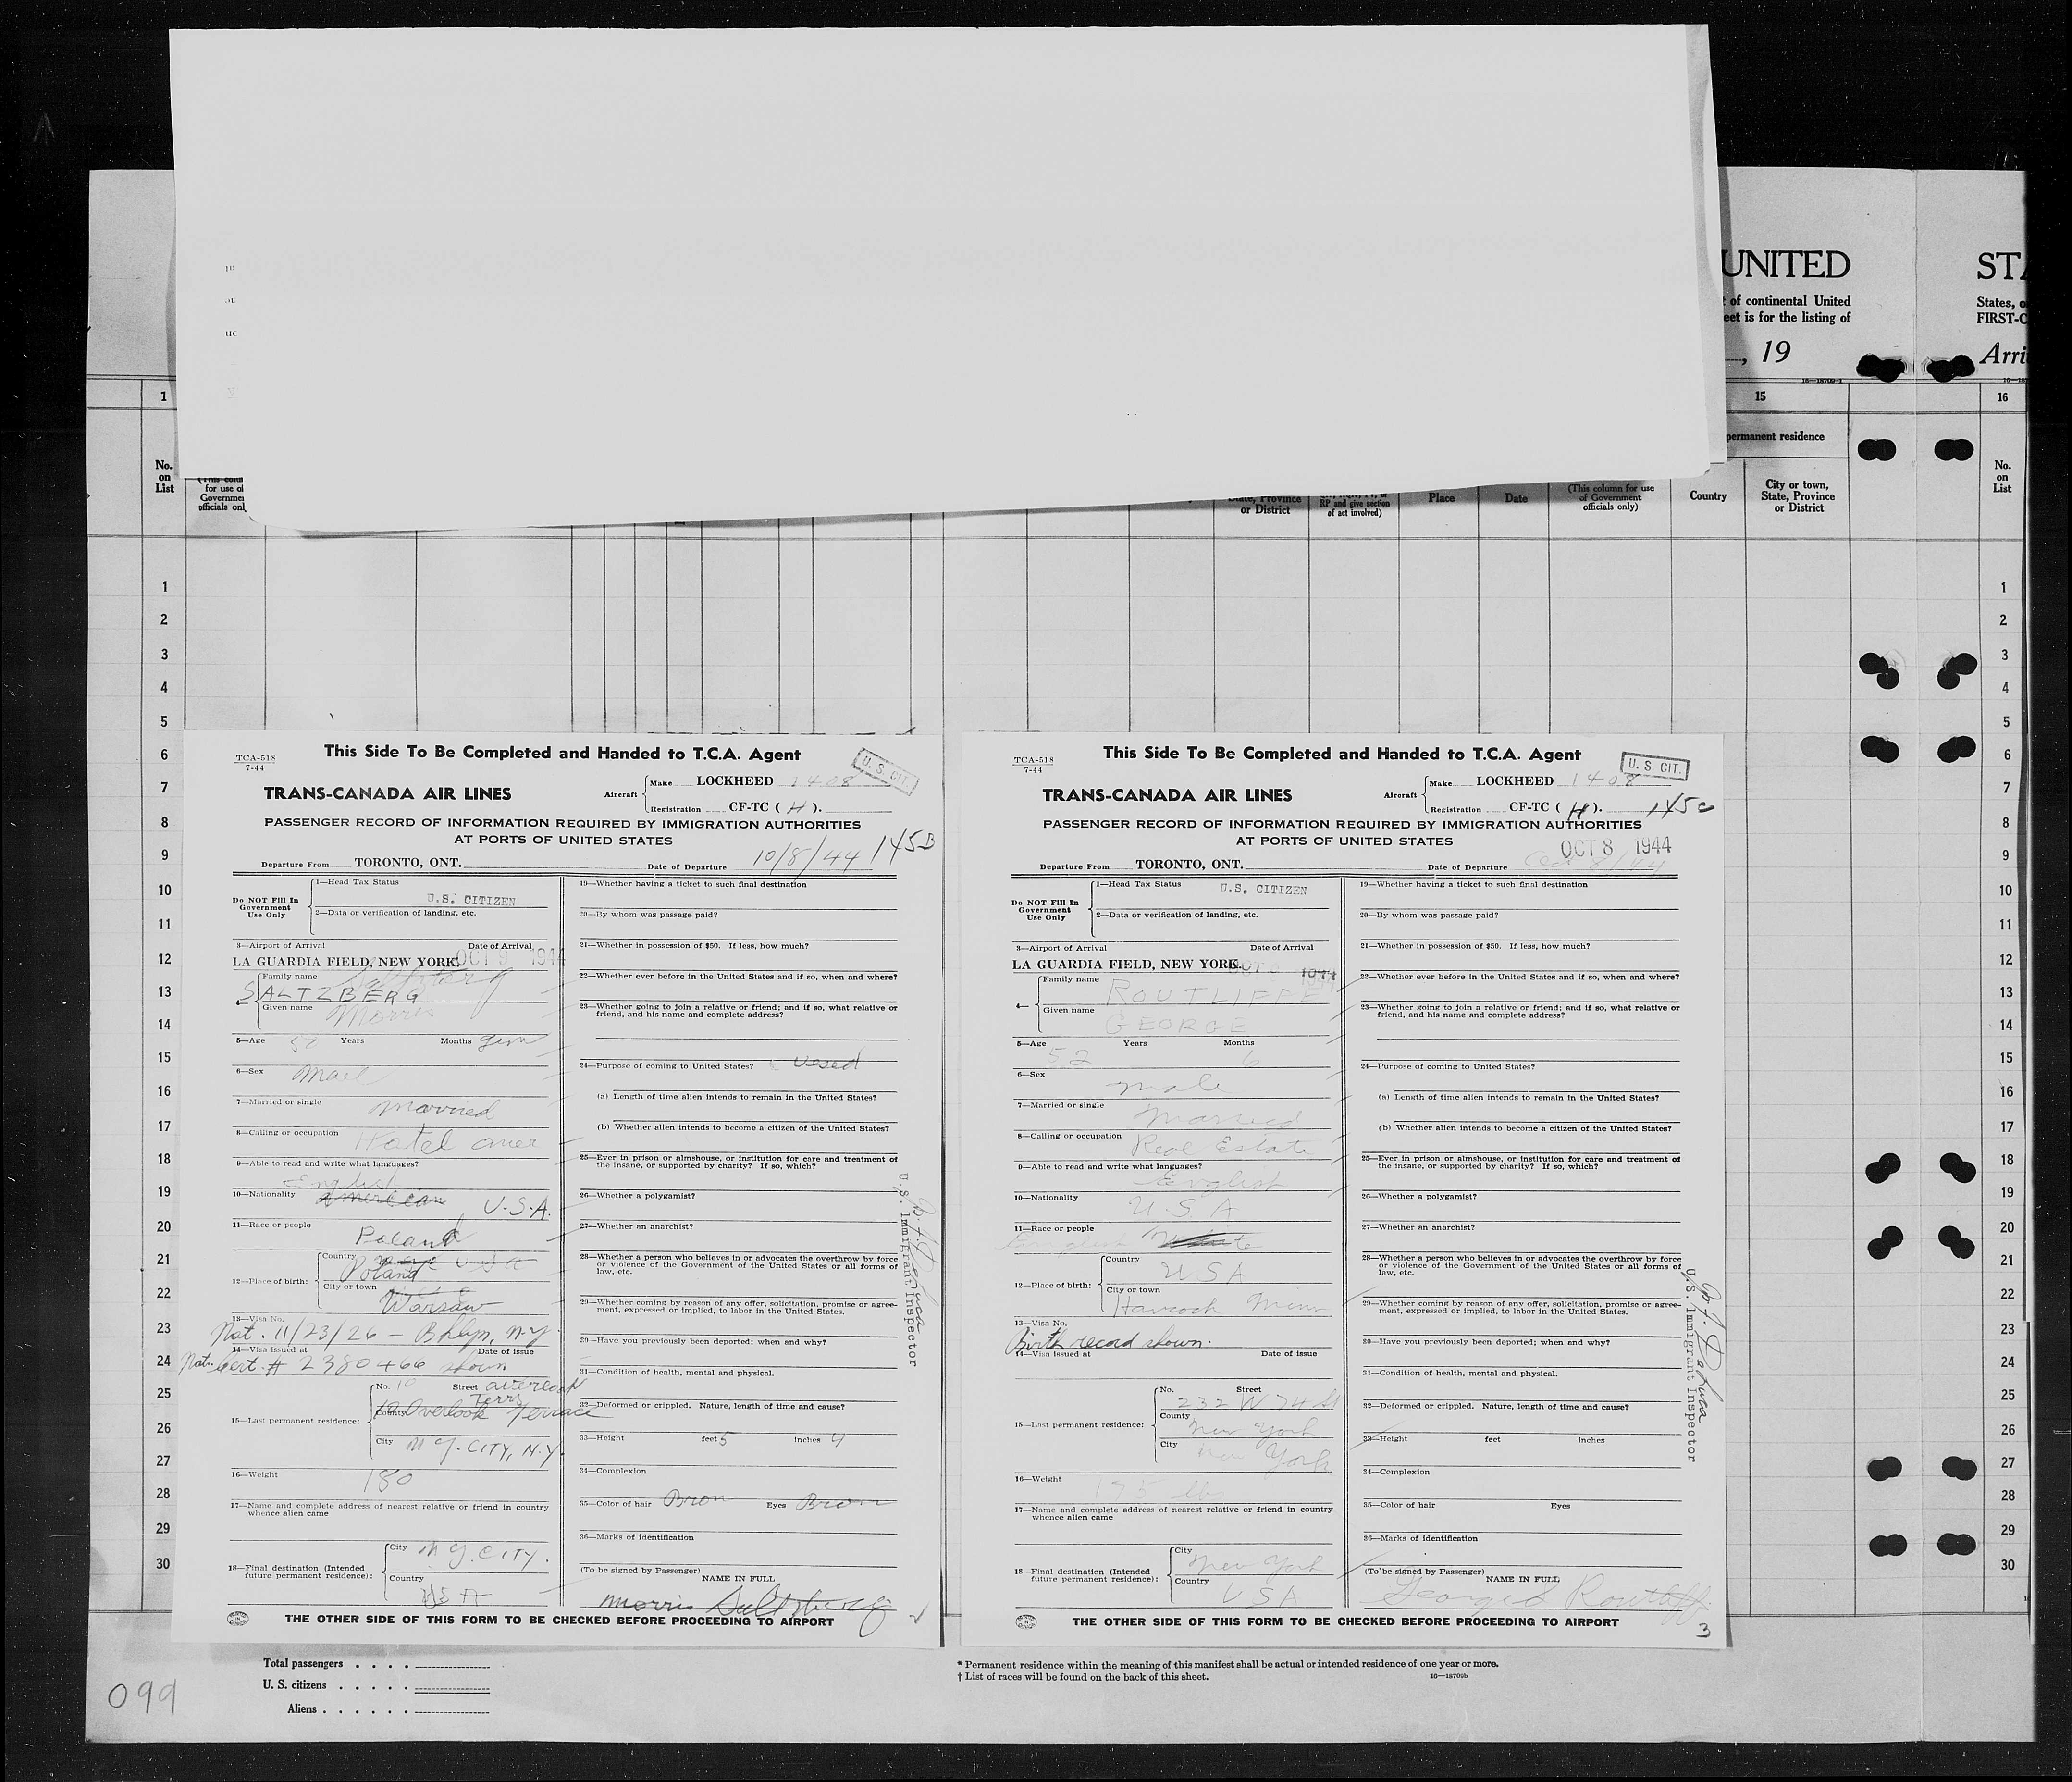 UNITED
STA
of continental United
eet is for the listing of
States, o
FIRST-C
, 19
Arri
16—18709-1
1
15
16
permanent residence
No.
on
List
for use of
Governme
officials onl
State, Province
or District
RP and give section
of act involved)
Place
Date
(This column for use
of Government
officials only)
Country
City or town,
State, Province
or District
No.
on
List
1
2
3
4
5
6
7
8
9
10
11
12
13
14
15
16
17
18
19
20
21
22
23
24
25
26
27
28
29
30
TCA-518
7-44
This Side To Be Completed and Handed to T.C.A. Agent
U. S. CIT.
TRANS-CANADA AIR LINES
Aircraft
Make LOCKHEED 1408
Registration CF-TC ( H ).
PASSENGER RECORD OF INFORMATION REQUIRED BY IMMIGRATION AUTHORITIES
AT PORTS OF UNITED STATES
145B
Departure From TORONTO, ONT.
Date of Departure 10/8/44
Do NOT Fill In
Government
Use Only
1—Head Tax Status
U.S. CITIZEN
2—Data or verification of landing, etc.
3—Airport of Arrival
Date of Arrival
LA GUARDIA FIELD, NEW YORK.
OCT 9 1944
Family name
SALTZBERG
Given name Morris
5—Age Years Months
6—Sex Mael
7—Married or single married
8—Calling or occupation Hatel oner
9—Able to read and write what languages?
English
10—Nationality american U.S.A.
11—Race or people
Poland
12—Place of birth:
Country
Poland
City or town
Warsaw
13—Visa No.
Nat. 11/23/26 — Bklyn, N.Y.
14—Visa issued at Date of issue
Nat. Cert. # 2380466 shown
15—Last permanent residence:
No. 10 Street averlook
Terrs
County
Overlook Terrace
City N Y. CITY, N.Y.
16—Weight 180
17—Name and complete address of nearest relative or friend in country
whence alien came
18—Final destination (Intended
future permanent residence):
City N Y. CITY.
Country
USA
19—Whether having a ticket to such final destination
20—By whom was passage paid?
21—Whether in possession of $50. If less, how much?
22—Whether ever before in the United States and if so, when and where?
23—Whether going to join a relative or friend; and if so, what relative or
friend, and his name and complete address?
24—Purpose of coming to United States?
(a) Length of time alien intends to remain in the United States?
(b) Whether alien intends to become a citizen of the United States?
25—Ever in prison or almshouse, or institution for care and treatment of
the insane, or supported by charity? If so, which?
26—Whether a polygamist?
27—Whether an anarchist?
28—Whether a person who believes in or advocates the overthrow by force
or violence of the Government of the United States or all forms of
law, etc.
29—Whether coming by reason of any offer, solicitation, promise or agree-
ment, expressed or implied, to labor in the United States.
30—Have you previously been deported; when and why?
31—Condition of health, mental and physical.
32—Deformed or crippled. Nature, length of time and cause?
33—Height feet 5 inches 4
34—Complexion
35—Color of hair Bron Eyes Bron
36—Marks of identification
(To be signed by Passenger)
NAME IN FULL
Morris Saltzberg
U.S. Immigrant Inspector
THE OTHER SIDE OF THIS FORM TO BE CHECKED BEFORE PROCEEDING TO AIRPORT
TCA-518
7-44
This Side To Be Completed and Handed to T.C.A. Agent
U. S. CIT.
TRANS-CANADA AIR LINES
Aircraft
Make LOCKHEED 1408
Registration CF-TC ( H ).
145C
PASSENGER RECORD OF INFORMATION REQUIRED BY IMMIGRATION AUTHORITIES
AT PORTS OF UNITED STATES
OCT 8 1944
Departure From TORONTO, ONT.
Date of Departure Oct 8/44
Do NOT Fill In
Government
Use Only
1—Head Tax Status
U.S. CITIZEN
2—Data or verification of landing, etc.
3—Airport of Arrival
Date of Arrival
LA GUARDIA FIELD, NEW YORK.
1944
4—
Family name
ROUTLIFFE
Given name
GEORGE
5—Age 52 Years Months 6
6—Sex
male
7—Married or single
Married
8—Calling or occupation
Real Estate
9—Able to read and write what languages?
English
10—Nationality
U.S A
11—Race or people
English White
12—Place of birth:
Country
USA
City or town
Hancock Minn
13—Visa No.
Birth record shown.
14—Visa issued at Date of issue
15—Last permanent residence:
No. Street
232 W 74 St
County
New York
City
New York
16—Weight
175 lbs
17—Name and complete address of nearest relative or friend in country
whence alien came
18—Final destination (Intended
future permanent residence):
City
New York
Country
USA
19—Whether having a ticket to such final destination
20—By whom was passage paid?
21—Whether in possession of $50. If less, how much?
22—Whether ever before in the United States and if so, when and where?
23—Whether going to join a relative or friend; and if so, what relative or
friend, and his name and complete address?
24—Purpose of coming to United States?
(a) Length of time alien intends to remain in the United States?
(b) Whether alien intends to become a citizen of the United States?
25—Ever in prison or almshouse, or institution for care and treatment of
the insane, or supported by charity? If so, which?
26—Whether a polygamist?
27—Whether an anarchist?
28—Whether a person who believes in or advocates the overthrow by force
or violence of the Government of the United States or all forms of
law, etc.
29—Whether coming by reason of any offer, solicitation, promise or agree-
ment, expressed or implied, to labor in the United States.
30—Have you previously been deported; when and why?
31—Condition of health, mental and physical.
32—Deformed or crippled. Nature, length of time and cause?
33—Height feet inches
34—Complexion
35—Color of hair Eyes
36—Marks of identification
(To be signed by Passenger)
NAME IN FULL
George Routliffe
U.S. Immigrant Inspector
THE OTHER SIDE OF THIS FORM TO BE CHECKED BEFORE PROCEEDING TO AIRPORT
3
1
2
3
4
5
6
7
8
9
10
11
12
13
14
15
16
17
18
19
20
21
22
23
24
25
26
27
28
29
30
Total passengers . . . .
U. S. citizens . . . . .
Aliens . . . . . .
* Permanent residence within the meaning of this manifest shall be actual or intended residence of one year or more.
† List of races will be found on the back of this sheet.
16—18709b
099